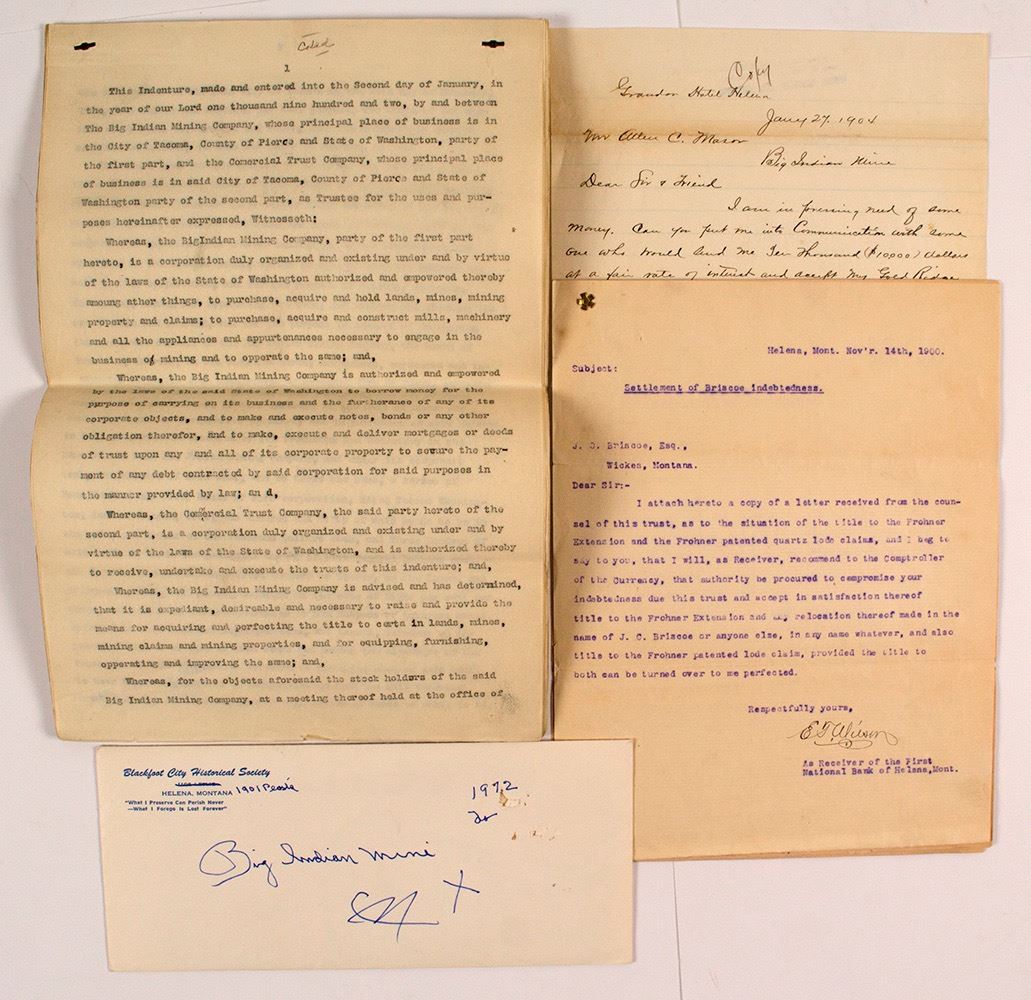 Coled
1
This Indenture, made and entered into the Second day of January, in
the year of our Lord one thousand nine hundred and two, by and between
The Big Indian Mining Company, whose principal place of business is in
the City of Tacoma, County of Pierce and State of Washington, party of
the first part, and the Comercial Trust Company, whose principal place
of business is in said City of Tacoma, County of Pierce and State of
Washington party of the second part, as Trustee for the uses and pur-
poses hereinafter expressed, Witnesseth:
Whereas, the BigIndian Mining Company, party of the first part
hereto, is a corporation duly organized and existing under and by virtue
of the laws of the State of Washington authorized and empowered thereby
amoung ather things, to purchase, acquire and hold lands, mines, mining
property and claims; to purchase, acquire and construct mills, machinery
and all the appliances and appurtenances necessary to engage in the
business of mining and to opperate the same; and,
Whereas, the Big Indian Mining Company is authorized and empowered
by the laws of the said State of Washington to borrow money for the
purpose of carrying on its business and the furtherance of any of its
corporate objects, and to make and execute notes, bonds or any other
obligation therefor, and to make, execute and deliver mortgages or deeds
of trust upon any and all of its corporate property to secure the pay-
ment of any debt contracted by said corporation for said purposes in
the manner provided by law; an d,
Whereas, the Comercial Trust Company, the said party hereto of the
second part, is a corporation duly organized and existing under and by
virtue of the laws of the State of Washington, and is authorized thereby
to receive, undertake and execute the trusts of this indenture; and,
Whereas, the Big Indian Mining Company is advised and has determined,
that it is expediant, desireable and necessary to raise and provide the
means for acquiring and perfecting the title to certa in lands, mines,
mining claims and mining properties, and for equipping, furnishing,
opperating and improving the same; and,
Whereas, for the objects aforesaid the stock holders of the said
Big Indian Mining Company, at a meeting thereof held at the office of
Copy
Grandon Hotel Helena
Jany 27, 1904
Mr Allen C. Mason
Big Indian Mine
Dear Sir & Friend
I am in pressing need of some
money. Can you put me into Communication with some
one who would lend me Ten Thousand ($10000) dollars
at a fair rate of interest and accept my Gold Ridge
Helena, Mont. Nov'r. 14th, 1900.
Subject:
Settlement of Briscoe indebtedness.
J. C. Briscoe, Esq.,
Wickes, Montana.
Dear Sir:-
I attach hereto a copy of a letter received from the coun-
sel of this trust, as to the situation of the title to the Frohner
Extension and the Frohner patented quartz lode claims, and I beg to
say to you, that I will, as Receiver, recommend to the Comptroller
of the Currency, that authority be procured to compromise your
indebtedness due this trust and accept in satisfaction thereof
title to the Frohner Extension and any relocation thereof made in the
name of J. C. Briscoe or anyone else, in any name whatever, and also
title to the Frohner patented lode claim, provided the title to
both can be turned over to me perfected.
Respectfully yours,
E. D. Wilson
As Receiver of the First
National Bank of Helena, Mont.
Blackfoot City Historical Society
HELENA, MONTANA 1901 Peosta
"What I Preserve Can Perish Never
—What I Forego Is Lost Forever"
1972
Big Indian Mine
X